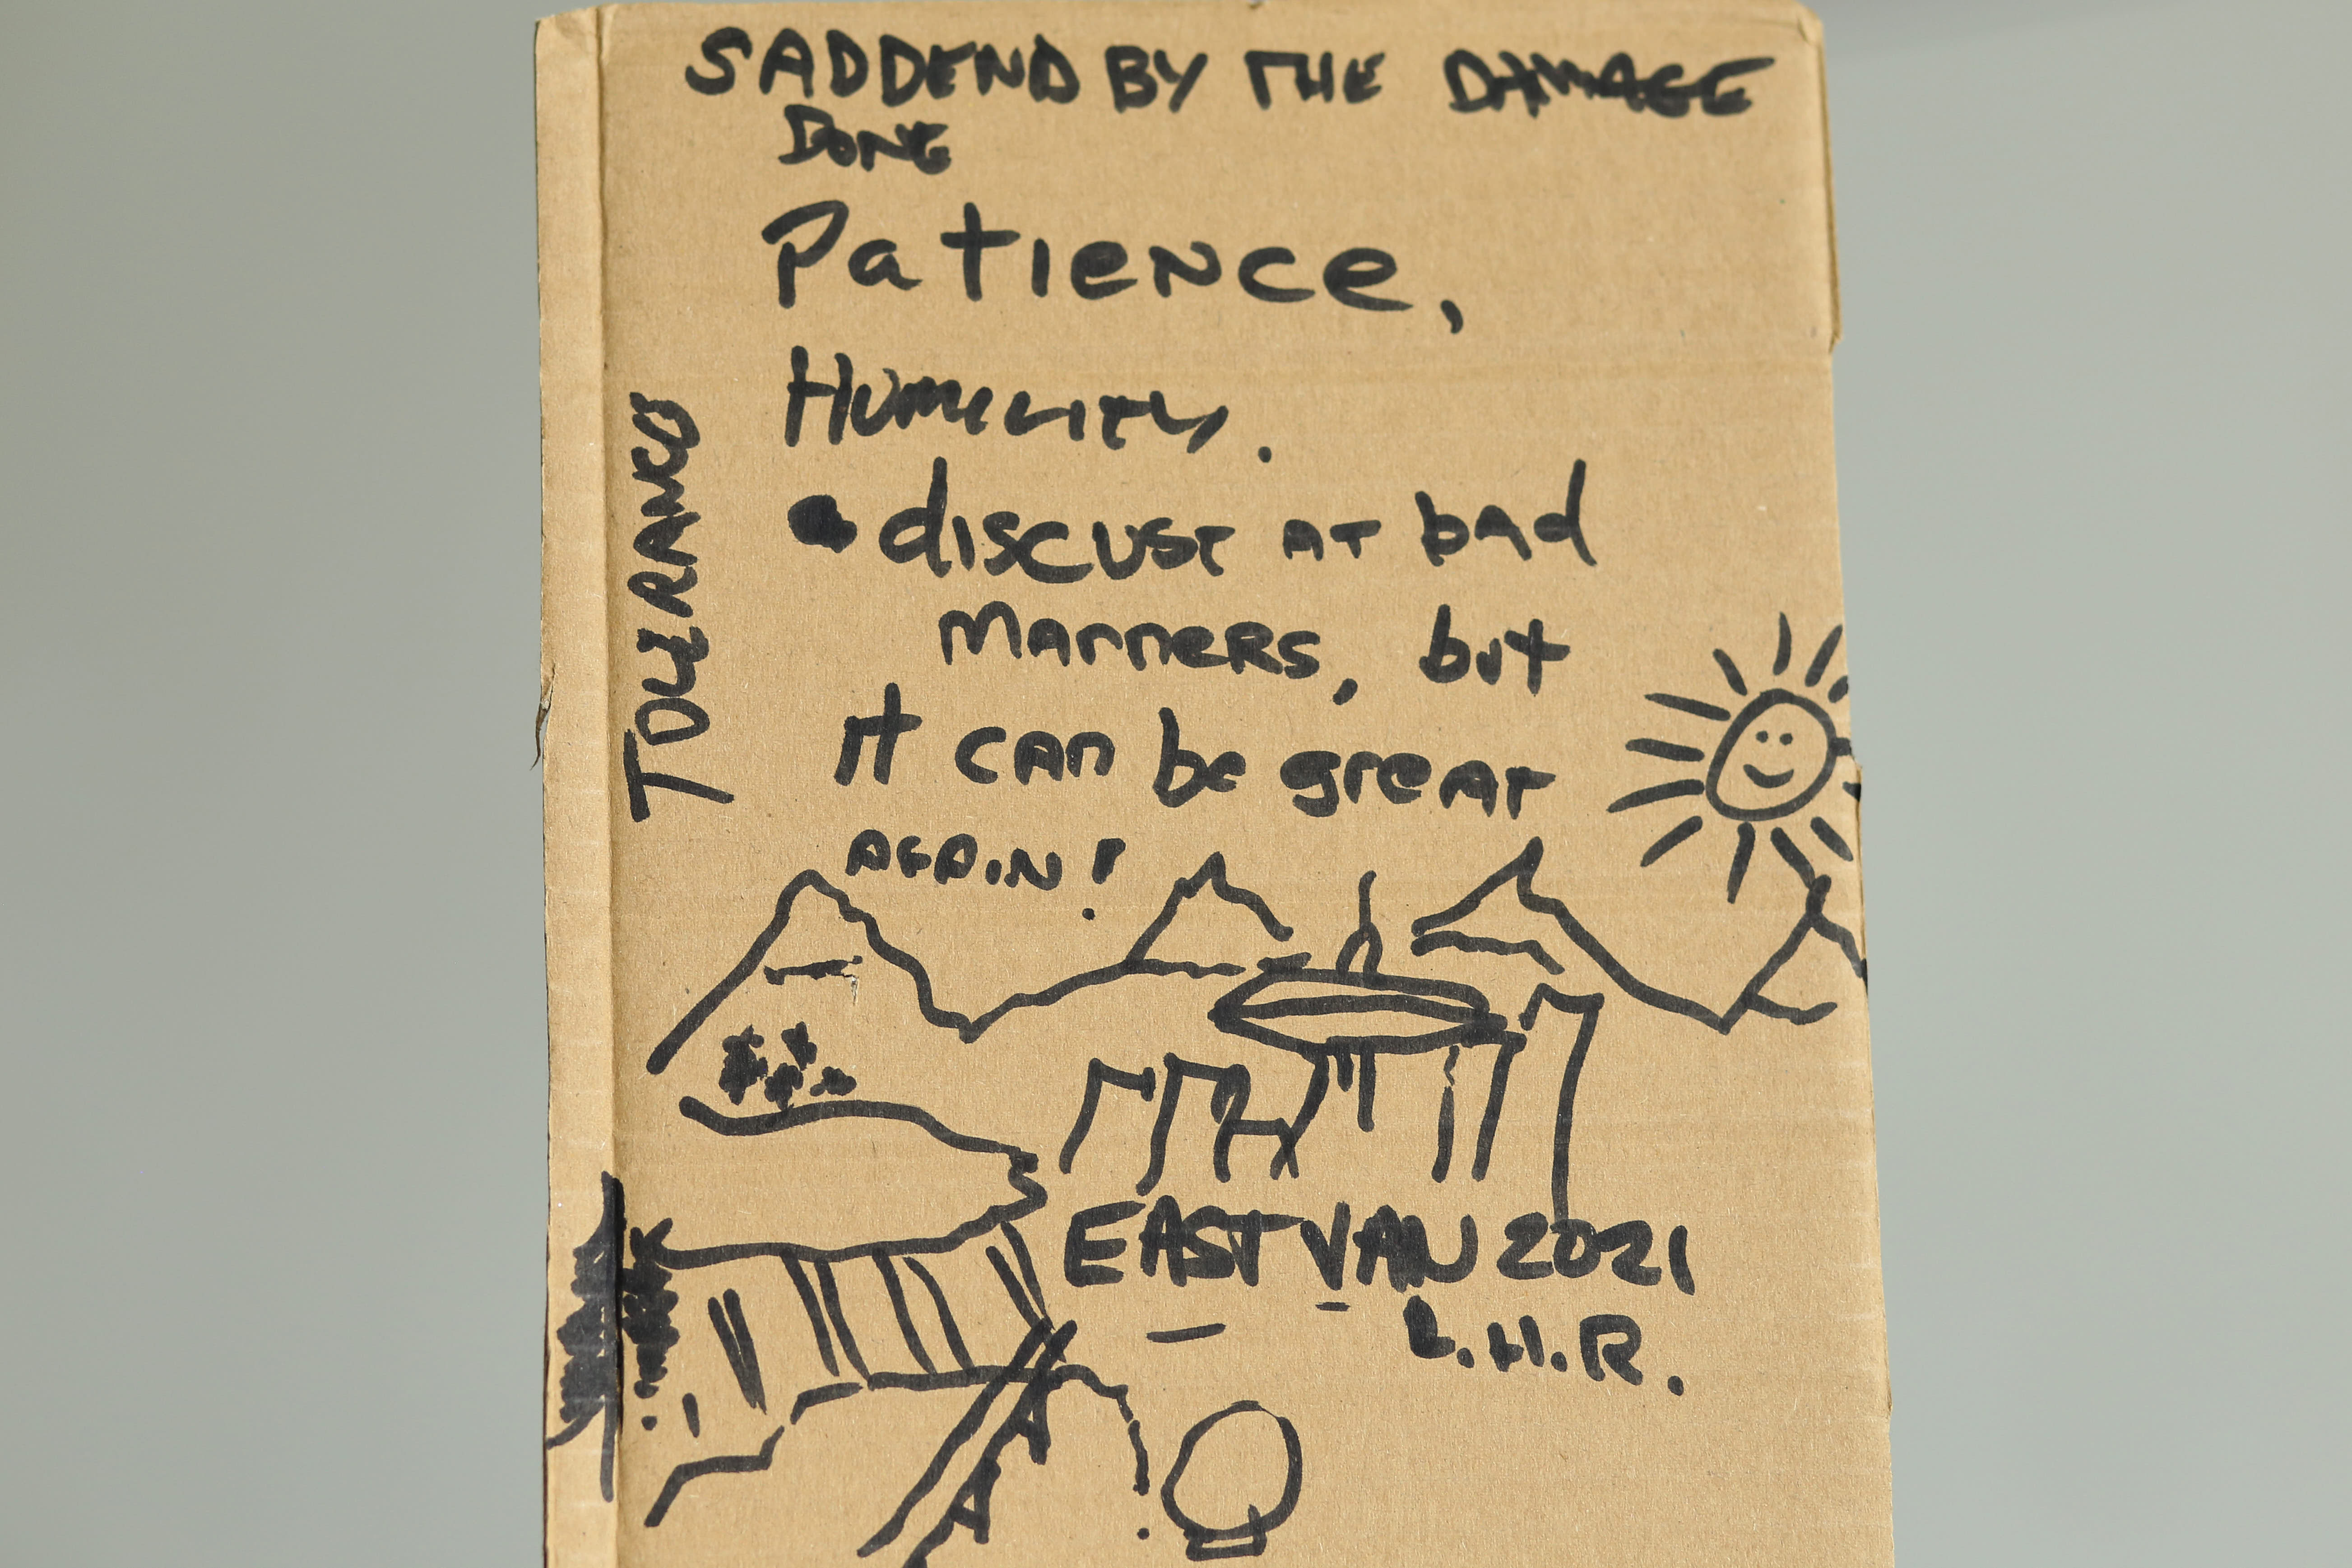 SADDEND BY THE DAMAGE
DONE
Patience,
Humility.
TOLERANCE
• discust at bad
manners, but
it can be great
again!
EAST VAN 2021
L.H.R.